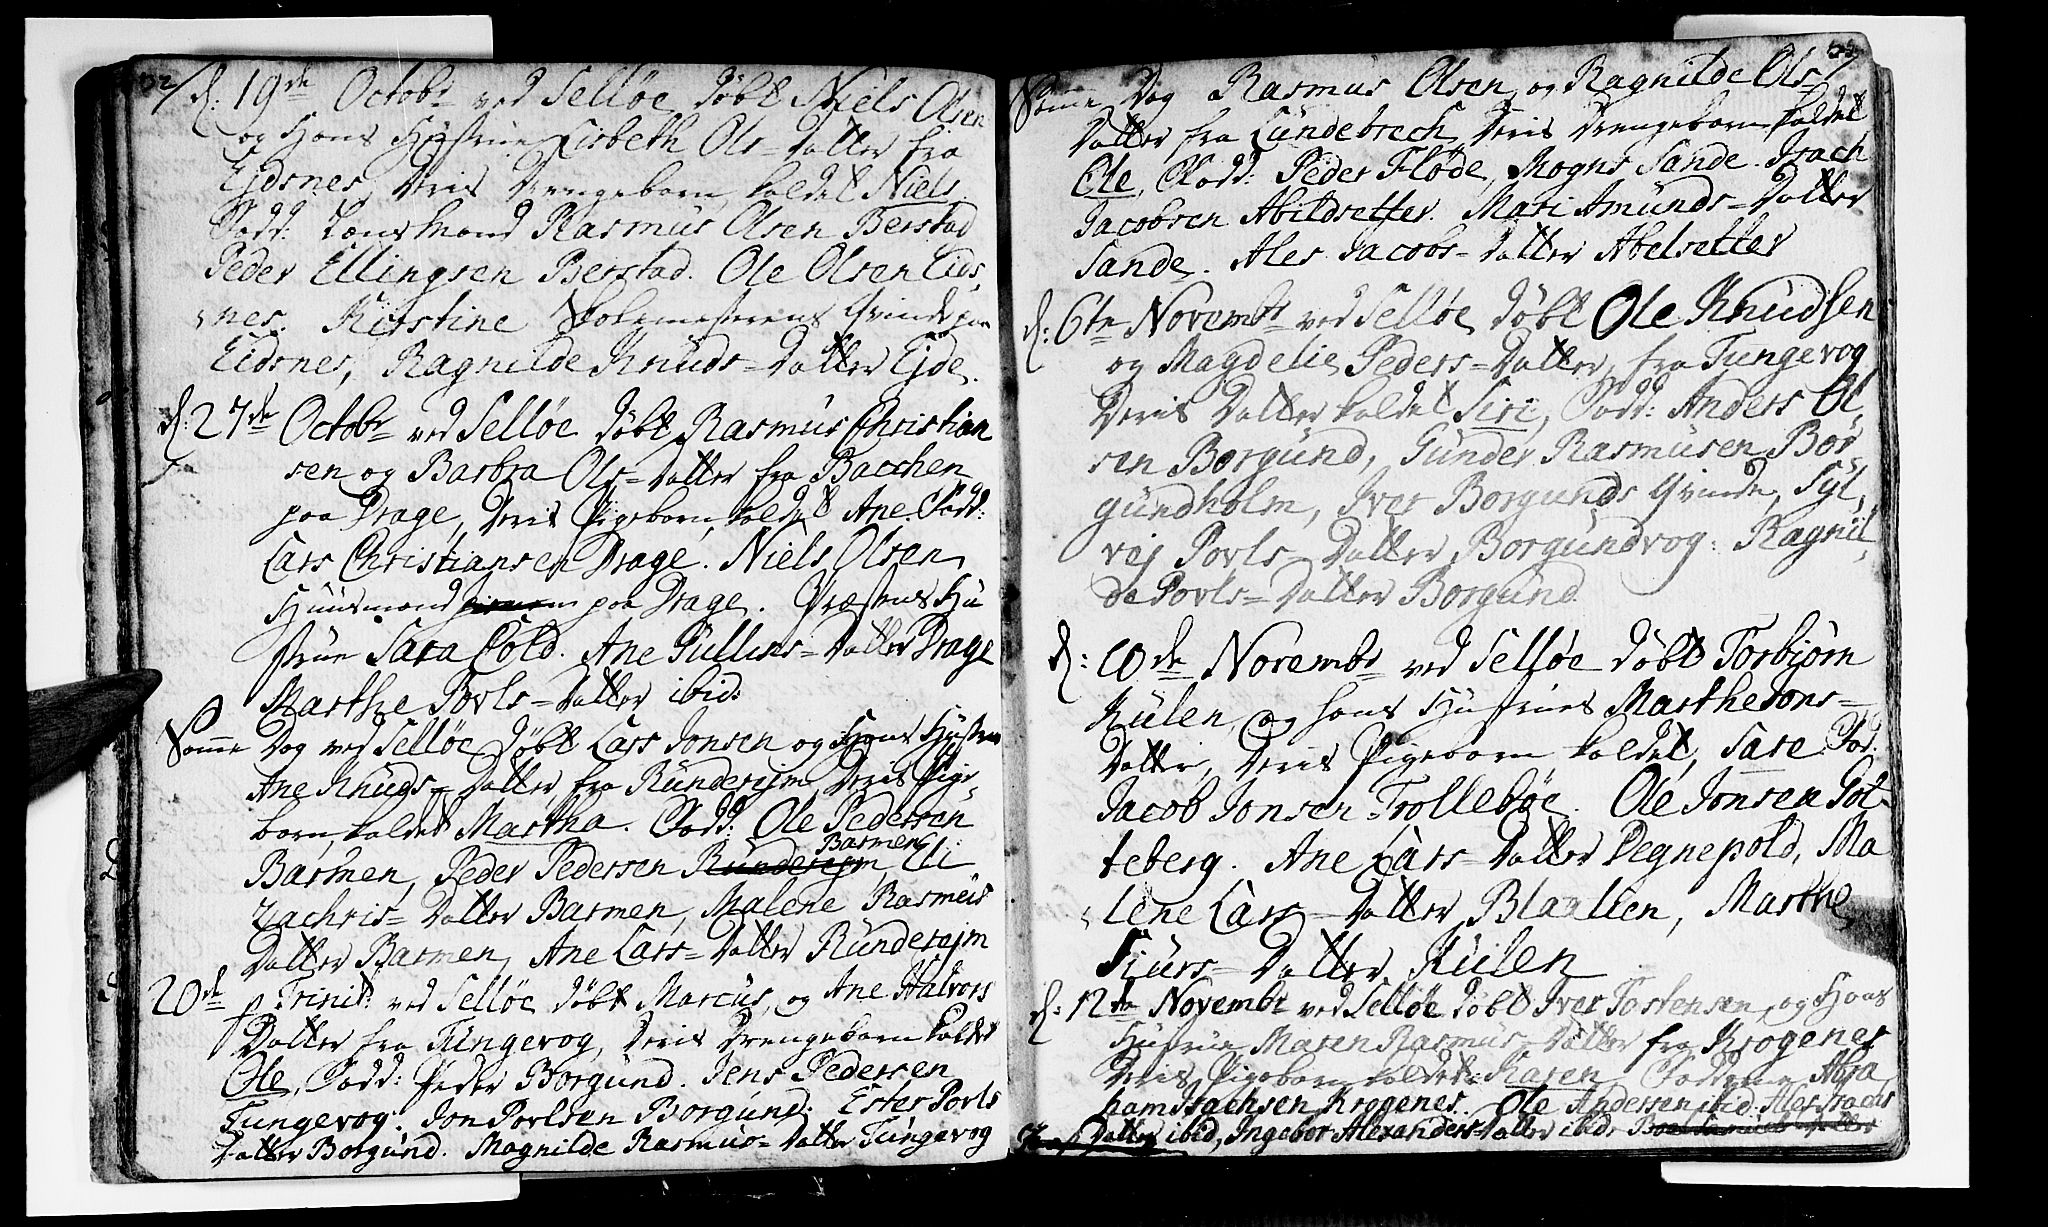 52
d: 19de Octobr ved Selløe døbt Niels Olsen
og Hans Hustrue Lisbeth Ols=Datter fra
Ejdsnes, Deris Drengebarn kaldet Niels
Fadd: Lensmand Rasmus Olsen Berstad
Peder Ellingsen Berstad. Ole Olsen Eids,
nes. Kirstine Skolemesterens Qvinde paa
Eidsnes, Ragnilde Knuds=Datter Ejde.
d: 27de Octobr ved Selløe døbt Rasmus Christian
sen og Barbra Ols=Datter fra Bacchen
paa Drage, Deris Pigebarn kaldet Ane. Fadd:
Lars Christiansen Drage. Niels Olsen
Huusmand paa Drage. Præstens Hu
strue Sara Cold. Ane Gullins=Datter Drage
Marthe Povls=Datter ibid:
Samme Dag ved Selløe døbt Lars Jonsen og Hans Hustrue
Ane Knuds=Datter fra Runderejm Deris Pige,
barn kaldet Martha. Fadd: Ole Pedersen
Barmen, Peder Pedersen Runderejm Barmen, Eli
Zachris=Datter Barmen, Malene Rasmus
Datter Barmen, Ane Lars=Datter Runderejm
20de p. Trinit: ved Selløe døbt Marcus, og Ane Halvors
Datter fra Tungevog, Deris Drengebarn kaldet
Ole, Fadd: Peder Borgund. Jens Pedersen
Tungevog. Jon Povlsen Borgund. Ester Povls
Datter Borgund. Magnilde Rasmus=Datter Tungevog
53
Samme Dag Rasmus Olsen og Ragnilde Ols=
Datter fra Lundebrech, Deris Drengebarn kaldet
Ole, Fadd: Peder Fløde, Mogns Sande. Isach
Jacobsen Abildsetter. Mari Amunds=Datter
Sande. Ales Jacobs=Datter Abelsetter
d: 6te Novembr ved Selløe døbt Ole Knudsen
og Magdelie Peders=Datter, fra Tungevog
Deris Datter kaldet Siri, Fadd: Anders Ol,
sen Borgund, Gunder Rasmusen Bor,
gundholm, Iver Borgunds Qvinde, Syl,
vej Povls=Datter Borgundvog: Ragnil,
de Povls=Datter Borgund
d: 10de Novembr ved Selløe døbt Torbjørn
Kulen, og hans Hustrues Marthe Jons=
Datter, Deris Pigebarn kaldet, Sare. Fad:
Jacob Jonsen Trollebøe. Ole Jonsen Got
teberg. Ane Lars=Datter Degnepold, Ma
lene Lars=Datter Blaalien, Marthe
Siurs=Datter Kulen
d: 12te Novembr ved Selløe døbt Iver Tostensen, og Hans
Hustrue Maren Rasmus=Datter fra Krogenes
Deris Pigebarn kaldet Karen Fadderne Abra
ham Isachsen Krogenes. Ole Andersen ibid. Ales Isachs
Datter ibid, Ingebor Alexanders=Datter ibid.